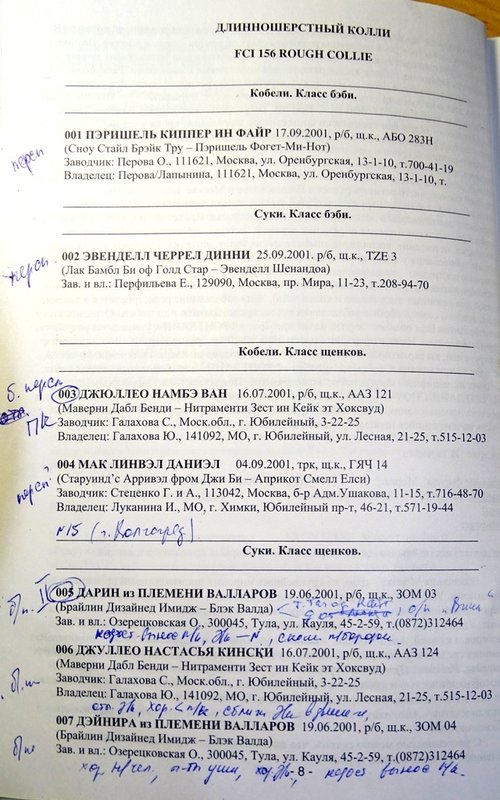 ДЛИННОШЕРСТНЫЙ КОЛЛИ
FCI 156 ROUGH COLLIE
Кобели. Класс бэби.
001 ПЭРИШЕЛЬ КИППЕР ИН ФАЙР 17.09.2001, р/б, щ.к., АБО 283Н
(Сноу Стайл Брэйк Тру – Пэришель Фогет-Ми-Нот)
Заводчик: Перова О., 111621, Москва, ул. Оренбургская, 13-1-10, т.700-41-19
Владелец: Перова/Лапынина, 111621, Москва, ул. Оренбургская, 13-1-10, т.
персп
Суки. Класс бэби.
002 ЭВЕНДЕЛЛ ЧЕРРЕЛ ДИННИ 25.09.2001. р/б, щ.к., TZE 3
(Лак Бамбл Би оф Голд Стар – Эвенделл Шенандоа)
Зав. и вл.: Перфильева Е., 129090, Москва, пр. Мира, 11-23, т.208-94-70
персп.
Кобели. Класс щенков.
б. персп
003 ДЖЮЛЛЕО НАМБЭ ВАН 16.07.2001, р/б, щ.к., ААЗ 121
ПК
(Маверни Дабл Бенди – Нитраменти Зест ин Кейк эт Хоксвуд)
Заводчик: Галахова С., Моск.обл., г. Юбилейный, 3-22-25
Владелец: Галахова Ю., 141092, МО, г. Юбилейный, ул. Лесная, 21-25, т.515-12-03
004 МАК ЛИНВЭЛ ДАНИЭЛ 04.09.2001, трк, щ.к., ГЯЧ 14
персп.
(Старуинд’с Арривэл фром Джи Би – Априкот Смелл Елси)
Заводчик: Стеценко Г. и А., 113042, Москва, б-р Адм.Ушакова, 11-15, т.716-48-70
Владелец: Луканина И., МО, г. Химки, Юбилейный пр-т, 46-21, т.571-19-44
N15 (г. Волгоград)
Суки. Класс щенков.
II
005 ДАРИН из ПЛЕМЕНИ ВАЛЛАРОВ 19.06.2001, р/б, щ.к., ЗОМ 03
(Брайлин Дизайнед Имидж – Блэк Валда)
Зав. и вл.: Озерецковская О., 300045, Тула, ул. Кауля, 45-2-59, т.(0872)312464
006 ДЖУЛЛЕО НАСТАСЬЯ КИНСКИ 16.07.2001, р/б, щ.к., ААЗ 124
(Маверни Дабл Бенди – Нитраменти Зест ин Кейк эт Хоксвуд)
Заводчик: Галахова С., Моск.обл., г. Юбилейный, 3-22-25
Владелец: Галахова Ю., 141092, МО, г. Юбилейный, ул. Лесная, 21-25, т.515-12-03
007 ДЭЙНИРА из ПЛЕМЕНИ ВАЛЛАРОВ 19.06.2001, р/б, щ.к., ЗОМ 04
(Брайлин Дизайнед Имидж – Блэк Валда)
Зав. и вл.: Озерецковская О., 300045, Тула, ул. Кауля, 45-2-59, т.(0872)312464
- 8 -